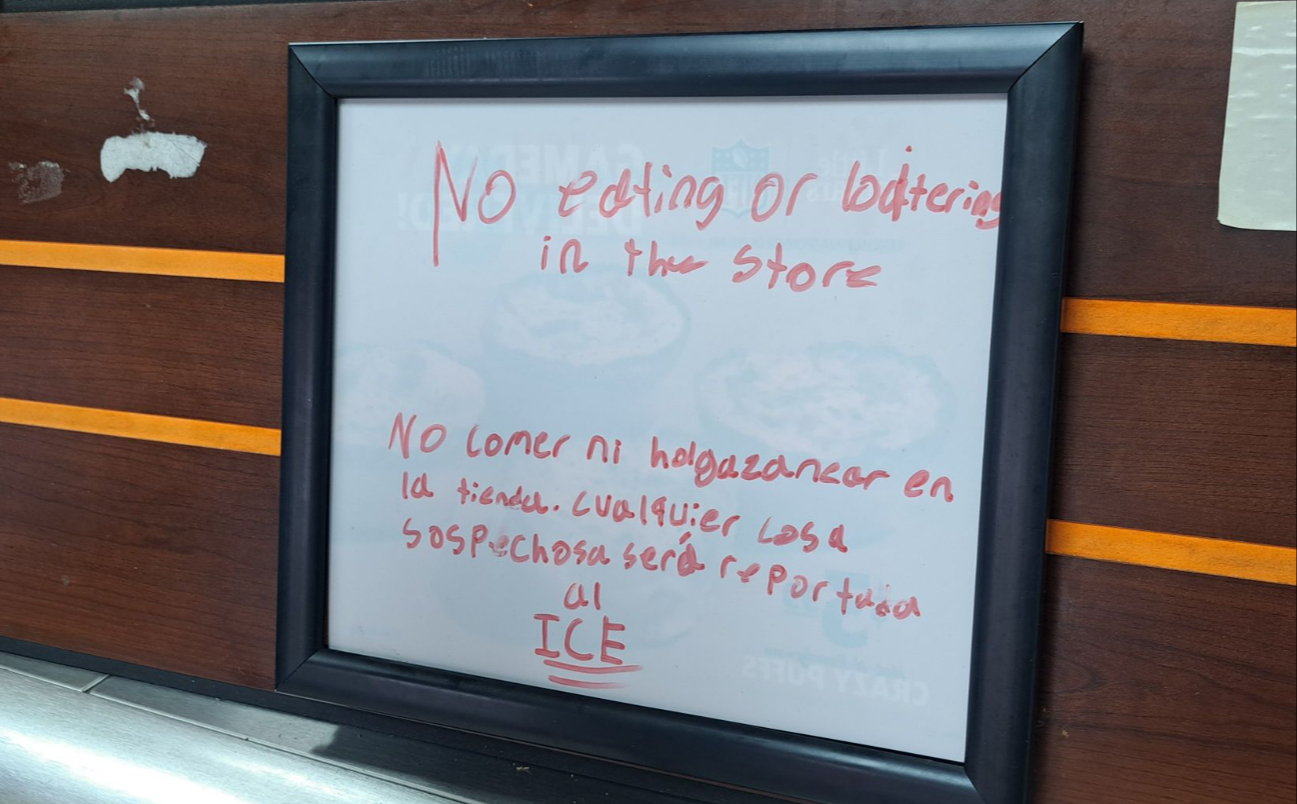 No eating or loitering
in the store
No comer ni holgazanear en
la tienda. cualquier cosa
sospechosa será reportada
al
ICE
GAMEDAY
DELIVERED!
NFL
CRAZY PUFFS